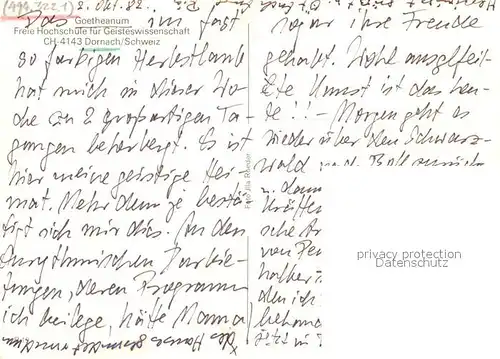 (494.322.1)
2. Okt. 82.
Das Goetheanum im fast
Freie Hochschule für Geisteswissenschaft
CH-4143 Dornach/Schweiz
so farbigen Herbstlaub
hat mich in dieser Wo-
che zu 2 großartigen Ta-
gungen beherbergt. Es ist
hier meine geistige Hei-
mat. Mehr denn je bestä-
tigt sich mir dies. An den
Eurythmischen Darbie-
tungen, deren Programm
ich beilege, hätte Mama
sogar ihre Freude
gehabt. Wohl ausgefeil-
te Kunst ist das heu-
te!! – Morgen geht es
wieder über den Schwarz-
wald nach Boll zurück
u. dann
Kräften
sche Ar
von Pen
halber
den ich
behand
Foto Ria Render
privacy protection
Datenschutz